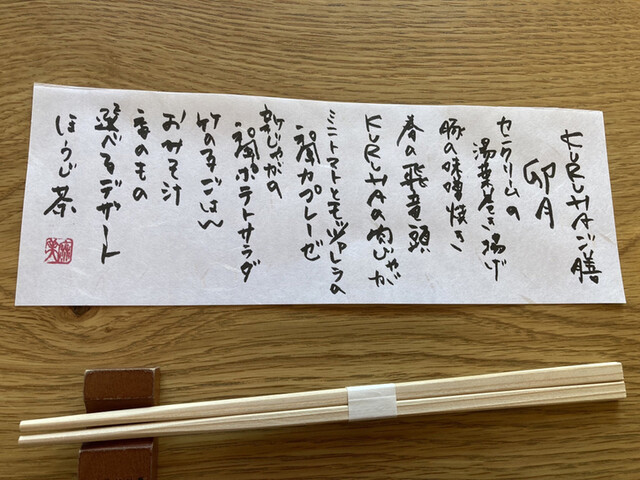 KURUHAご膳
卯月
センクリームの
湯葉巻き揚げ
豚の味噌焼き
春の飛竜頭
KURUHAの肉じゃが
ミニトマトとモッツァレラの
和風カプレーゼ
新じゃがの
和風ポテトサラダ
竹の子ごはん
おみそ汁
香のもの
選べるデザート
ほうじ茶